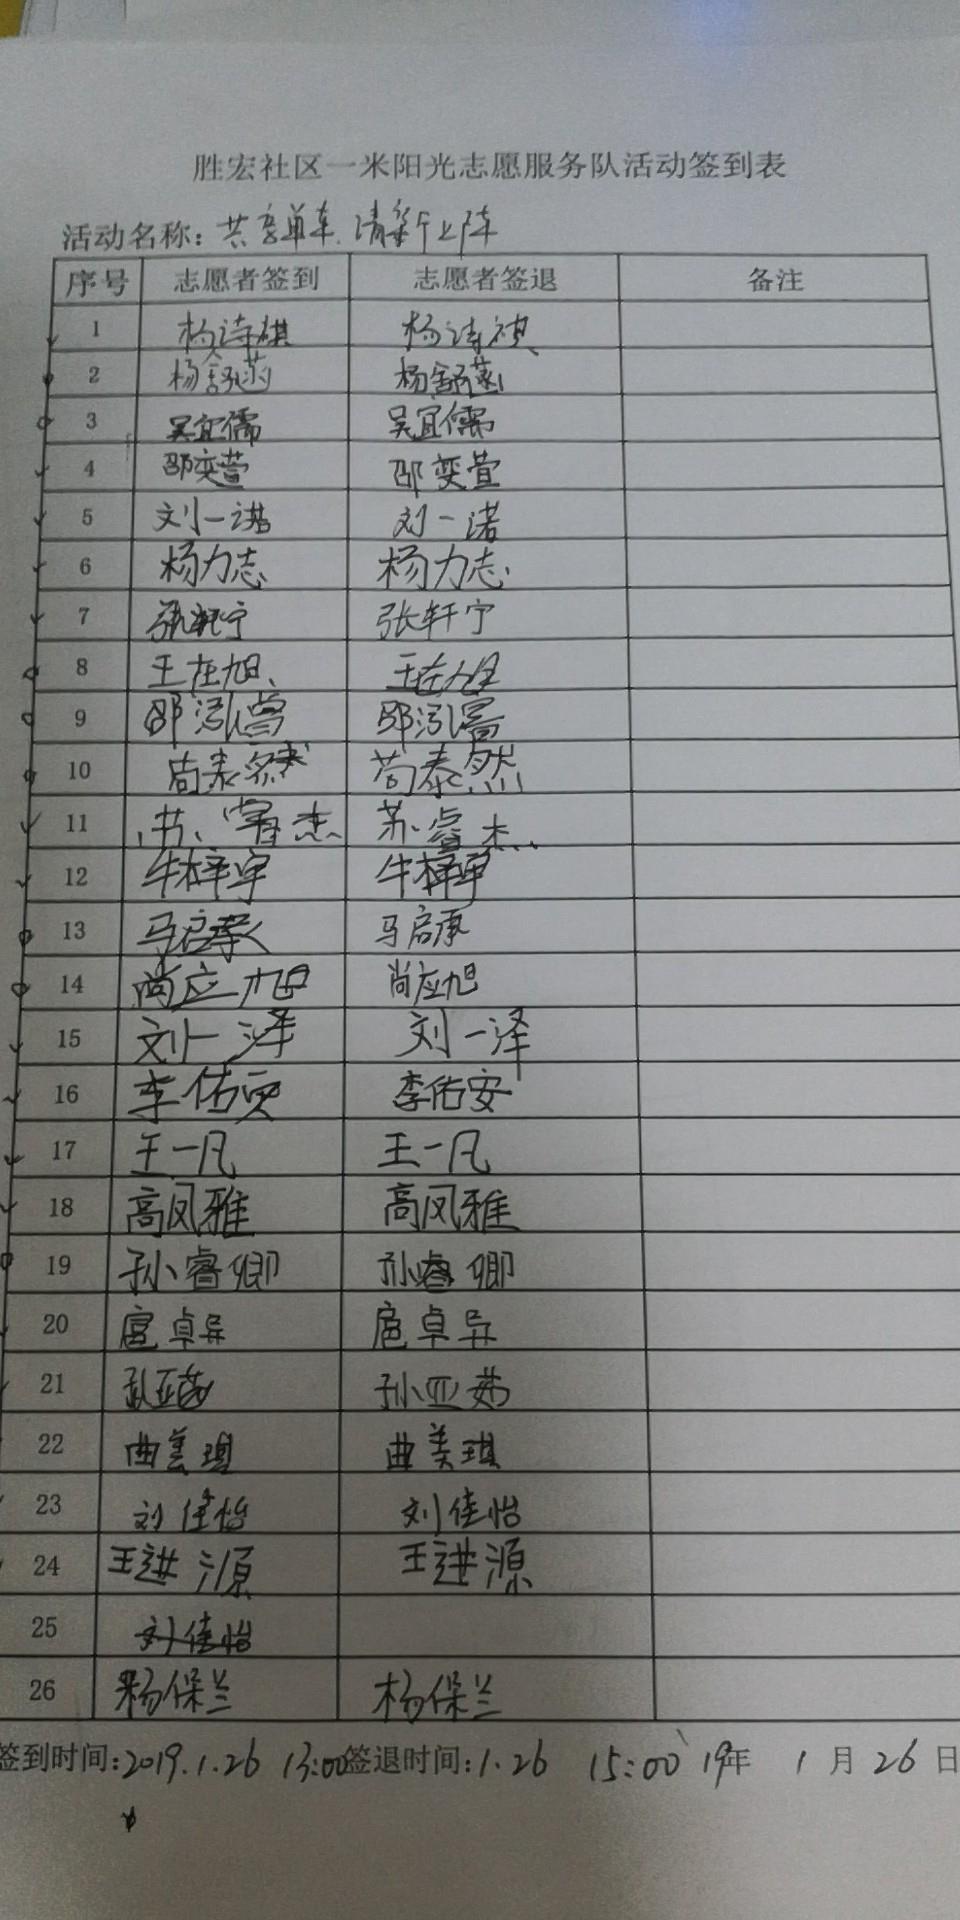 胜宏社区一米阳光志愿服务队活动签到表
活动名称：共享单车、清新上阵
序号 志愿者签到 志愿者签退 备注
1 杨诗祺 杨诗祺
2 杨舒涵 杨舒涵
3 吴宜儒 吴宜儒
4 邵奕萱 邵奕萱
5 刘一诺 刘一诺
6 杨力志 杨力志
7 张轩宁 张轩宁
8 王在旭 王在旭
9 邵泓
10 苟泰然 苟泰然
11 苏睿杰 苏睿杰
12 牛梓宇 牛梓宇
13 马启承 马启承
14 尚应旭 尚应旭
15 刘一泽 刘一泽
16 李佑安 李佑安
17 王一凡 王一凡
18 高凤雅 高凤雅
19 孙睿卿 孙睿卿
20 扈卓异 扈卓异
21 孙亚茹 孙亚茹
22 曲美琪 曲美琪
23 刘佳怡 刘佳怡
24 王进源 王进源
25 刘佳怡
26 杨保兰 杨保兰
签到时间：2019.1.26 13:00 签退时间：1.26 15:00 19年 1月26日